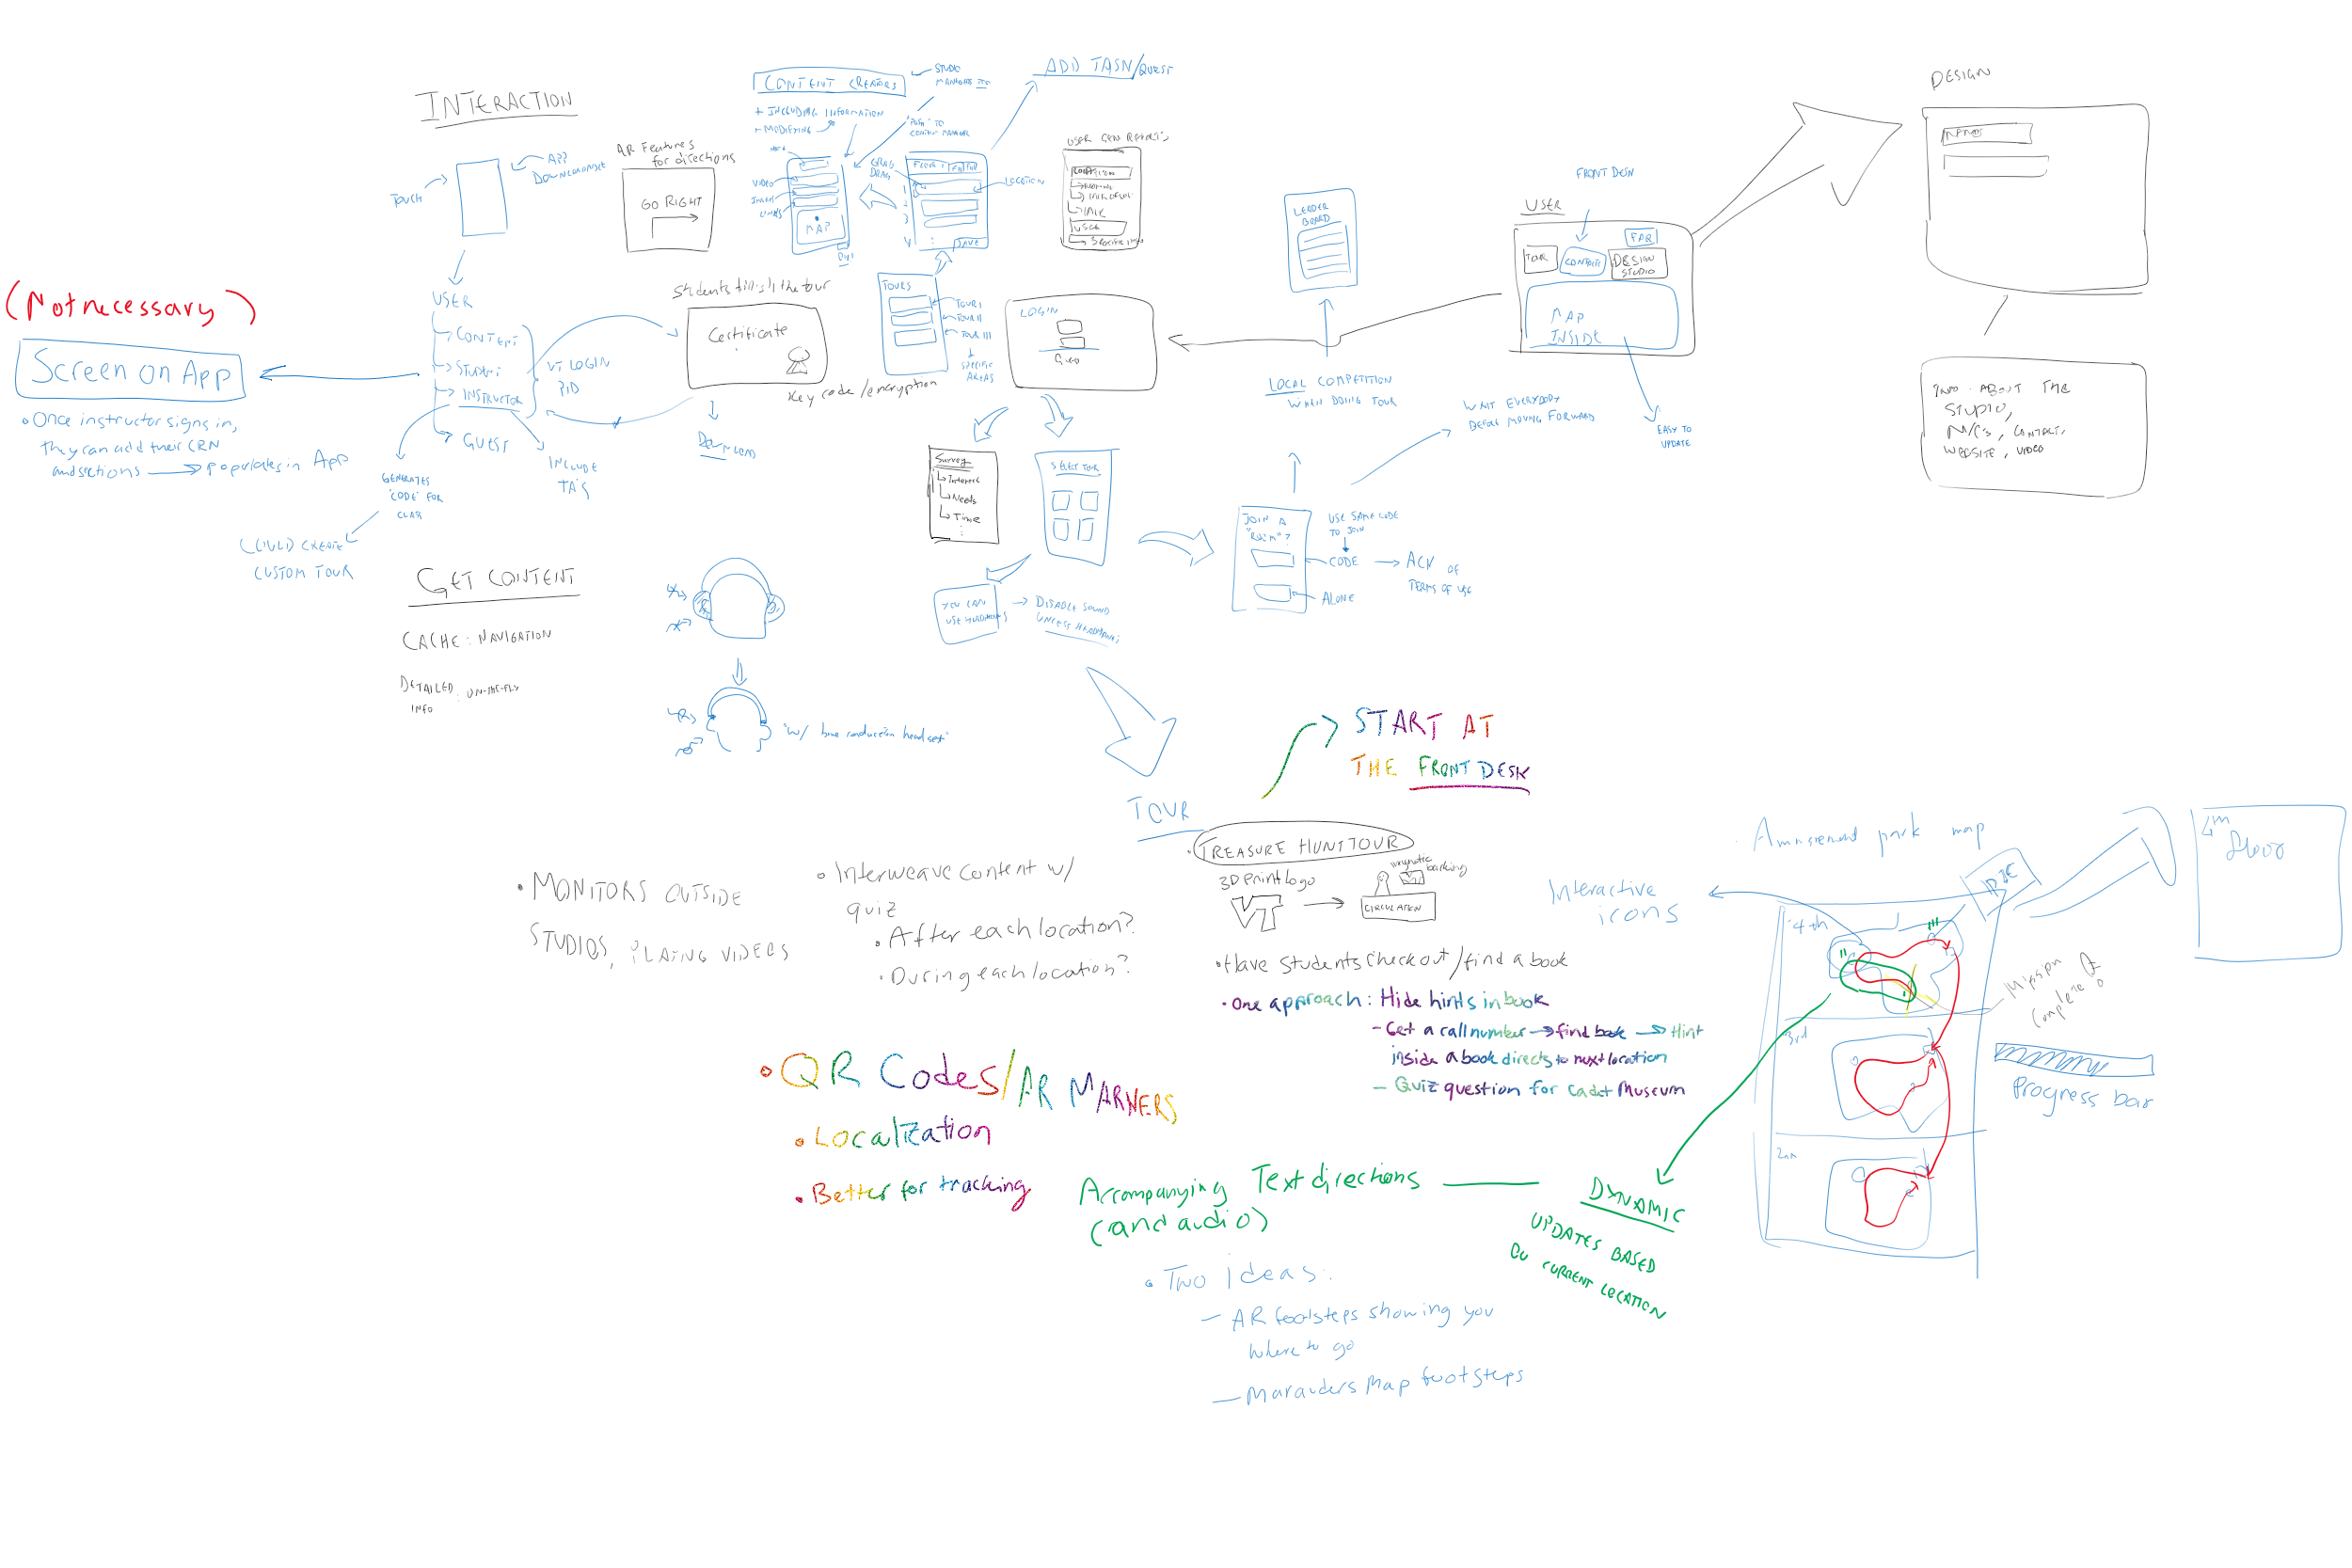 INTERACTION
TOUCH
APP
DOWNLOADABLE
AR Features
for directions
GO RIGHT
CONTENT CREATORS
STUDIO
MANAGERS
+ INCLUDING INFORMATION
+ MODIFYING
"PUSH" TO
CONTENT MANAGER
VIDEO
IMAGES
LINKS
MAP
GRAB
DRAG
FLOOR
1
2
3
LOCATION
SAVE
ADD TASK/QUEST
USER GEN
LEADER
BOARD
FRONT DESK
USER
TOUR
CONTACTS
DESIGN
STUDIO
MAP
INSIDE
EASY TO
UPDATE
DESIGN
INFO ABOUT THE
STUDIO,
CONTACT,
WEBSITE, VIDEO
(Not necessary)
Screen on App
• Once instructor signs in,
they can add their CRN
and sections → populates in App
USER
CONTENT
STUDENT
INSTRUCTOR
GUEST
VT LOGIN
PID
INCLUDE
TA'S
GENERATES
'CODE' FOR
CLASS
CREATE
CUSTOM TOUR
Students finish the tour
Certificate
Key code/encryption
TOURS
TOUR I
TOUR II
TOUR III
SPECIFIC
AREAS
LOGIN
Survey
Interest
Needs
Time
SELECT TOUR
YOU CAN
USE HEADPHONES
→ DISABLE SOUND
UNLESS HEADPHONES
LOCAL COMPETITION
WHEN DOING TOUR
WAIT EVERYBODY
BEFORE MOVING FORWARD
JOIN A
"ROOM"?
USE SAME CODE
TO JOIN
CODE
→ ACK OF
TERMS OF USE
ALONE
GET CONTENT
CACHE: NAVIGATION
DETAILED
INFO
: ON-THE-FLY
"w/ bone conduction headset"
START AT
THE FRONT DESK
TOUR
• TREASURE HUNT TOUR
3D print logo
VT
magnetic
backing
CIRCULATION
• Have students check out/find a book
• One approach: Hide hints in book
- Get a call number → find book → Hint
inside a book directs to next location
- Quiz question for Cadet Museum
• MONITORS OUTSIDE
STUDIOS, PLAYING VIDEOS
• Interweave content w/
quiz
• After each location?
• During each location?
• QR Codes/AR MARKERS
• Localization
• Better for tracking
Accompanying Text directions
(and audio)
DYNAMIC
UPDATES BASED
ON CURRENT LOCATION
• Two ideas:
- AR footsteps showing you
where to go
- Marauders Map footsteps
Interactive
icons
Amusement park map
4th
3rd
2nd
Mission
Complete
Progress bar
4th
floor